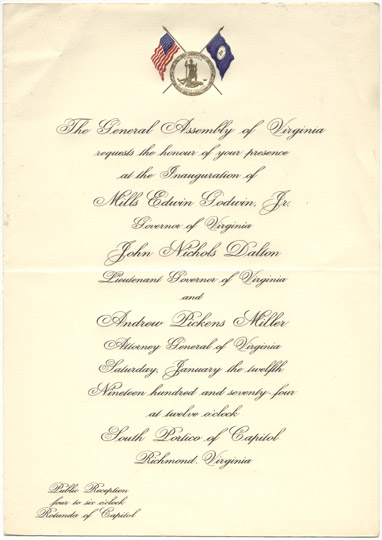 The General Assembly of Virginia
requests the honour of your presence
at the Inauguration of
Mills Edwin Godwin, Jr.
Governor of Virginia
John Nichols Dalton
Lieutenant Governor of Virginia
and
Andrew Pickens Miller
Attorney General of Virginia
Saturday, January the twelfth
Nineteen hundred and seventy-four
at twelve o'clock
South Portico of Capitol
Richmond, Virginia
Public Reception
four to six o'clock
Rotunda of Capitol